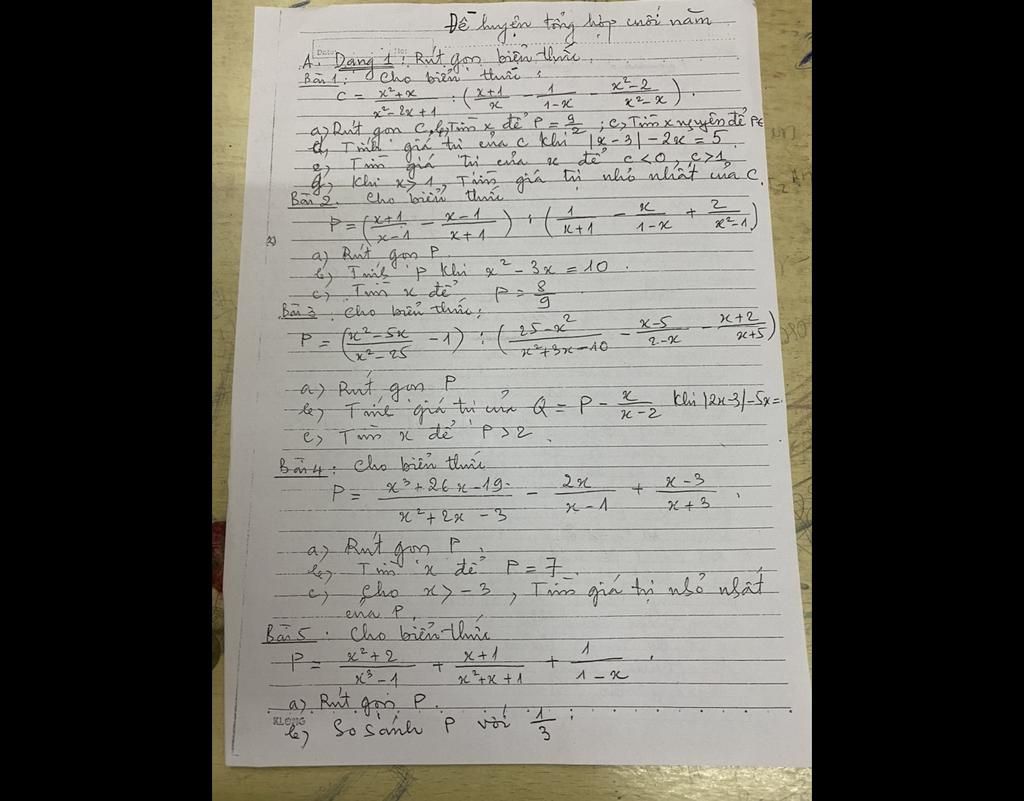 Đề luyện tổng hợp cuối năm
A. Dạng 1: Rút gọn biểu thức.
Bài 1: Cho biểu thức:
C = (x²+x)/(x²-2x+1) : ((x+1)/x - 1/(1-x) - (x²-2)/(x²-x)).
a) Rút gọn C, b) Tìm x để P = 9/2; c, Tìm x nguyên để P∈
d, Tính giá trị của C khi |x-3| - 2x = 5.
e, Tìm giá trị của x để C<0, C>1
g, Khi x>1, Tìm giá trị nhỏ nhất của C.
Bài 2. Cho biểu thức
P = ((x+1)/(x-1) - (x-1)/(x+1)) : (1/(x+1) - x/(1-x) + 2/(x²-1))
a) Rút gọn P.
b) Tính P khi x² - 3x = 10.
c) Tìm x để P = 8/9
Bài 3: Cho biểu thức:
P = ((x²-5x)/(x²-25) - 1) : ((25-x²)/(x²+3x-10) - (x-5)/(2-x) - (x+2)/(x+5))
a) Rút gọn P
b) Tính giá trị của Q = P - x/(x-2) khi |2x-3| - 5x =
c) Tìm x để P>2.
Bài 4: Cho biểu thức
P = (x³+26x-19)/(x²+2x-3) - 2x/(x-1) + (x-3)/(x+3).
a) Rút gọn P.
b) Tìm x để P = 7.
c) Cho x > -3, Tìm giá trị nhỏ nhất
của P.
Bài 5. Cho biểu thức
P = (x²+2)/(x³-1) + (x+1)/(x²+x+1) + 1/(1-x).
a) Rút gọn P.
KLONG
b) So sánh P với 1/3;